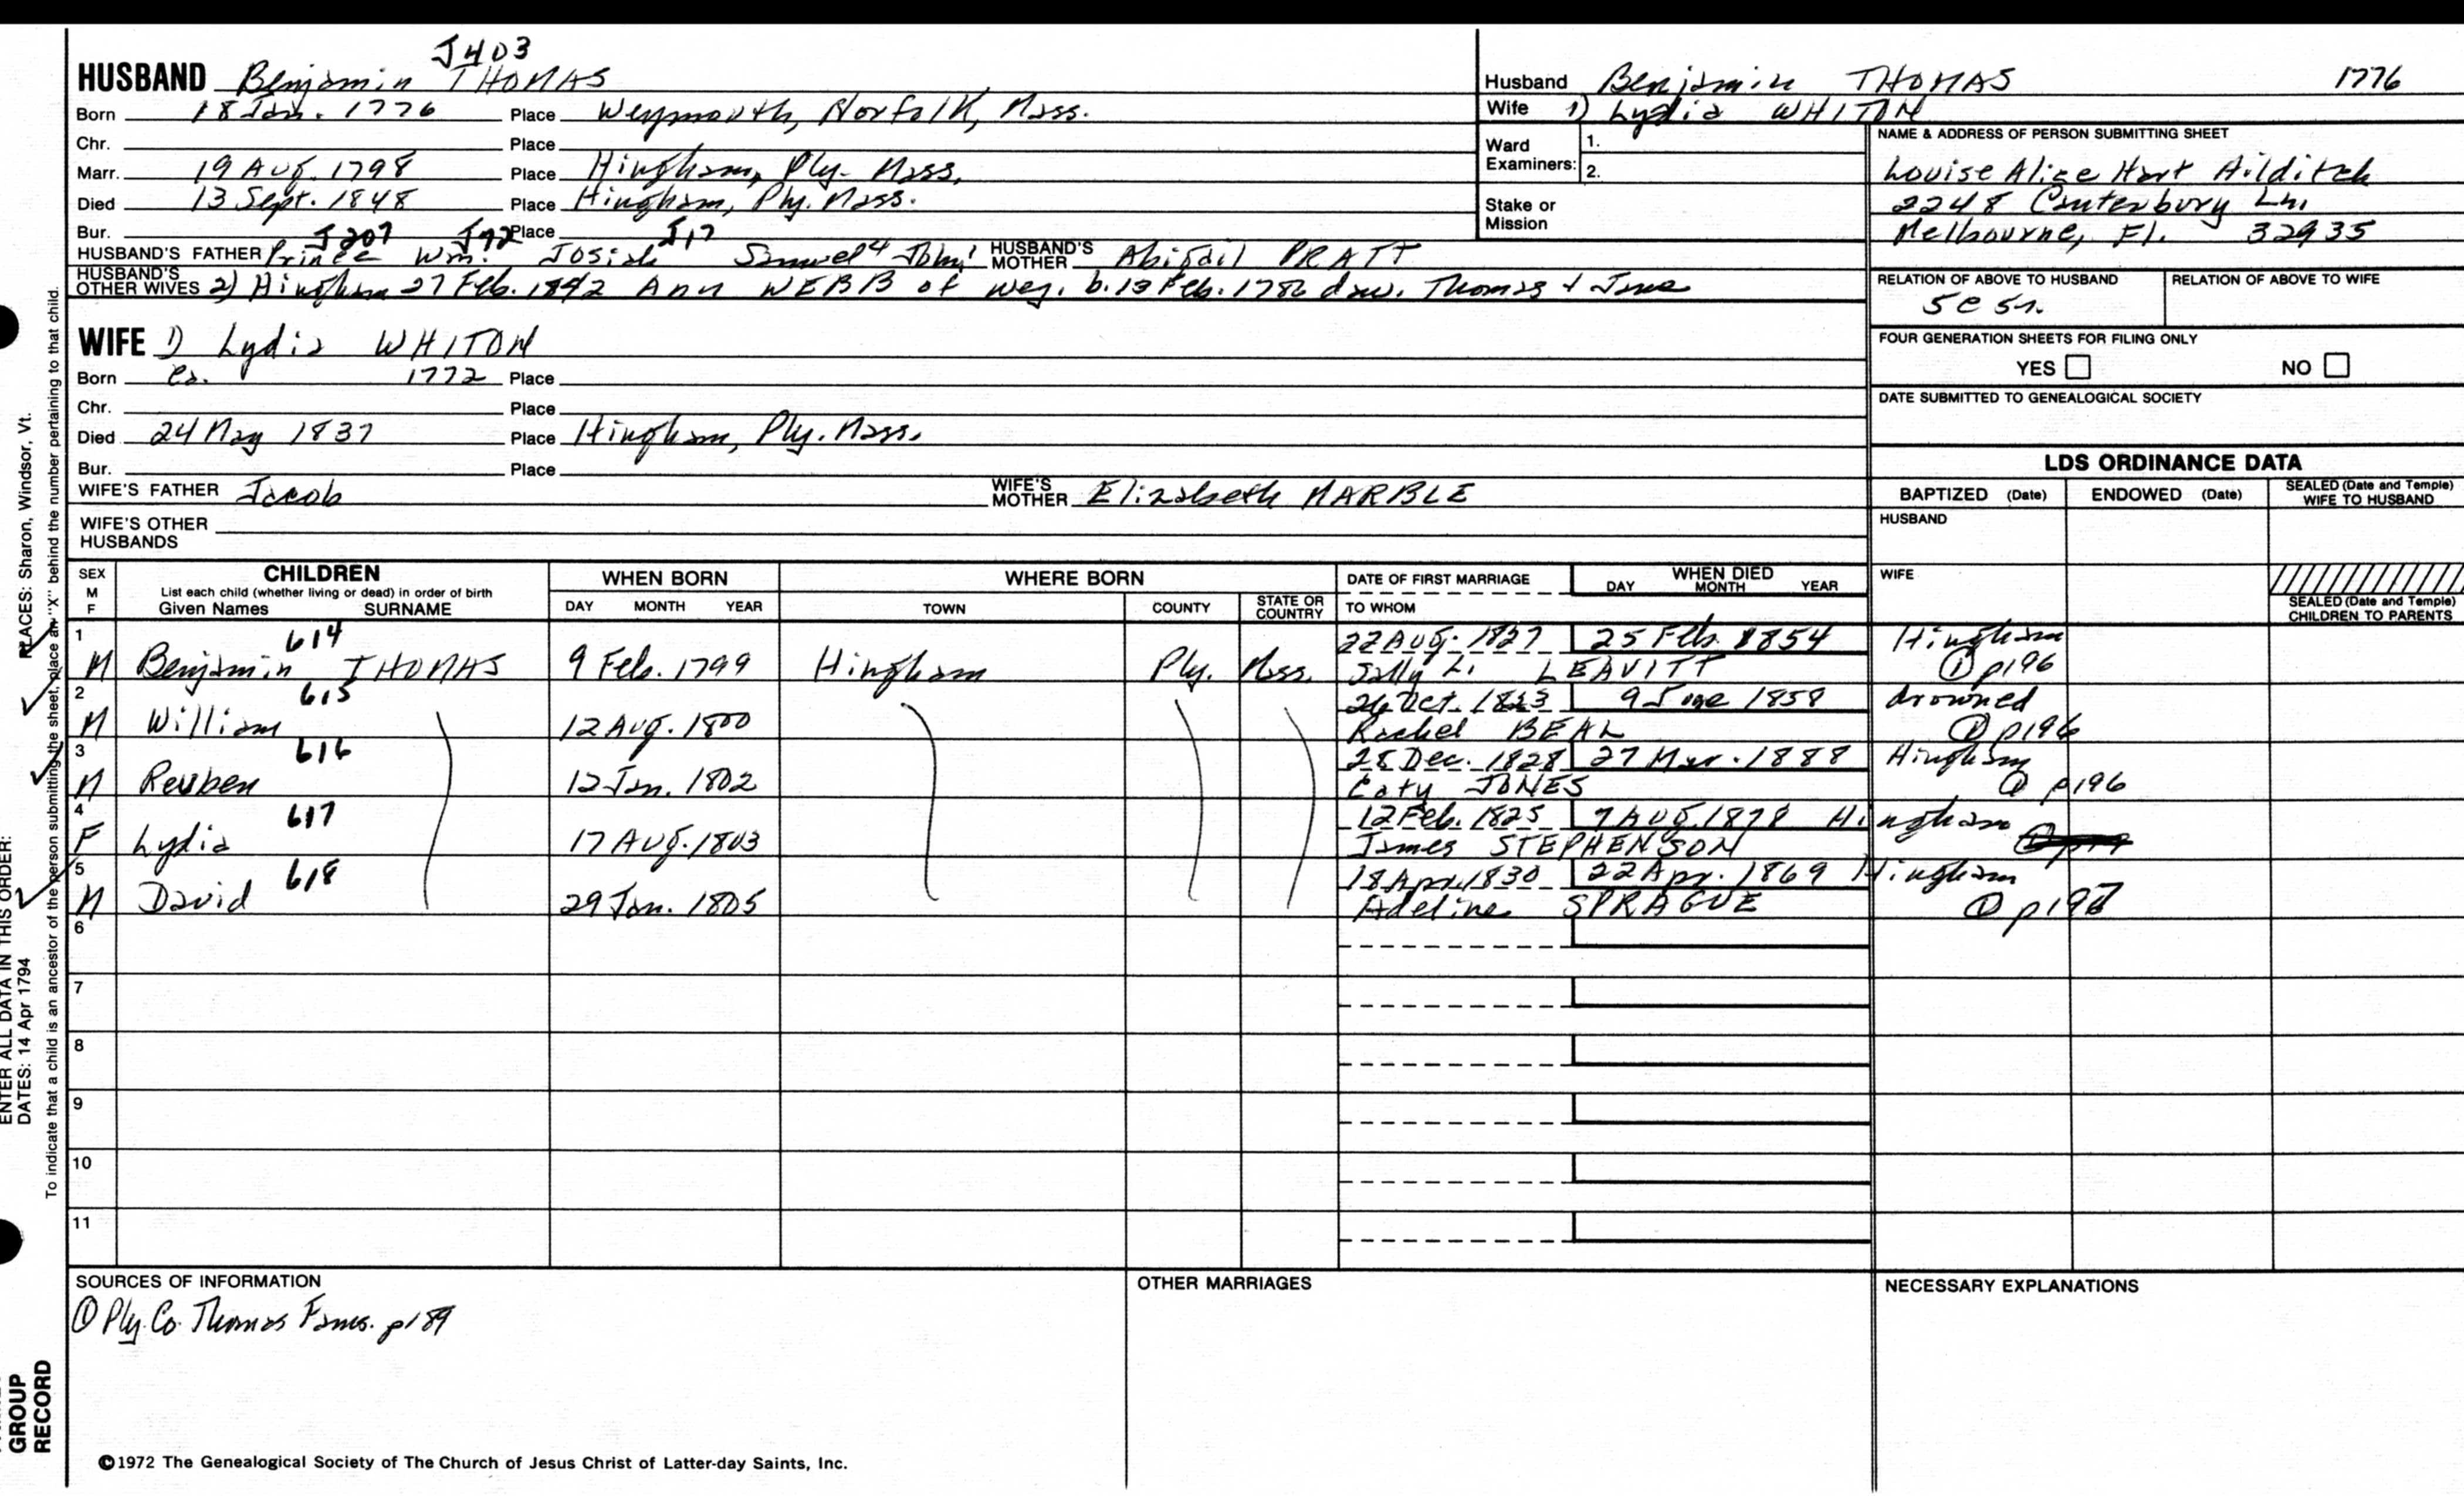 J403
HUSBAND Benjamin THOMAS
Born 18 Jan. 1776 Place Weymouth, Norfolk, Mass.
Chr. Place
Marr. 19 Aug. 1798 Place Hingham, Ply. Mass.
Died 13 Sept. 1848 Place Hingham, Ply. Mass.
Bur. Place
J207 J72 J17
HUSBAND'S FATHER Prince Wm. Josiah Samuel4 John' HUSBAND'S MOTHER Abigail PRATT
HUSBAND'S OTHER WIVES 2) Hingham 27 Feb. 1842 Ann WEBB of Wey. b. 13 Feb. 1786 dau. Thomas + Jane
WIFE 1) Lydia WHITON
Born Ca. 1772 Place
Chr. Place
Died 24 May 1837 Place Hingham, Ply. Mass.
Bur. Place
WIFE'S FATHER Jacob WIFE'S MOTHER Elizabeth MARBLE
WIFE'S OTHER HUSBANDS
Husband Benjamin THOMAS 1776
Wife 1) Lydia WHITON
Ward Examiners: 1.
2.
Stake or Mission
NAME & ADDRESS OF PERSON SUBMITTING SHEET
Louise Alice Hart Hilditch
2248 Canterbury Ln.
Melbourne, Fl. 32935
RELATION OF ABOVE TO HUSBAND RELATION OF ABOVE TO WIFE
FOUR GENERATION SHEETS FOR FILING ONLY
YES NO
DATE SUBMITTED TO GENEALOGICAL SOCIETY
LDS ORDINANCE DATA
BAPTIZED (Date) ENDOWED (Date) SEALED (Date and Temple) WIFE TO HUSBAND
HUSBAND
WIFE
SEALED (Date and Temple) CHILDREN TO PARENTS
SEX M F CHILDREN WHEN BORN WHERE BORN DATE OF FIRST MARRIAGE WHEN DIED
List each child (whether living or dead) in order of birth
Given Names SURNAME DAY MONTH YEAR TOWN COUNTY STATE OR COUNTRY TO WHOM DAY MONTH YEAR
1 614 22 Aug. 1827 25 Feb. 1854 Hingham
M Benjamin THOMAS 9 Feb. 1799 Hingham Ply. Mass. Sally L. LEAVITT ① p196
2 615 26 Oct. 1823 9 June 1858 drowned
M William 12 Aug. 1800 Rachel BEAL ① p196
3 616 28 Dec. 1828 27 Mar. 1888 Hingham
M Reuben 12 Jan. 1802 Caty JONES ① p196
4 617 12 Feb. 1825 7 Aug. 1878 Hingham
F Lydia 17 Aug. 1803 James STEPHENSON
5 618 18 Apr. 1830 22 Apr. 1869 Hingham
M David 29 Jan. 1805 Adeline SPRAGUE ① p197
6
7
8
9
10
11
SOURCES OF INFORMATION OTHER MARRIAGES NECESSARY EXPLANATIONS
① Ply. Co. Thomas Fams. p189
©1972 The Genealogical Society of The Church of Jesus Christ of Latter-day Saints, Inc.
ENTER ALL DATA IN THIS ORDER:
DATES: 14 Apr 1794 PLACES: Sharon, Windsor, Vt.
To indicate that a child is an ancestor of the person submitting the sheet, place an "X" behind the number pertaining to that child.
GROUP
RECORD